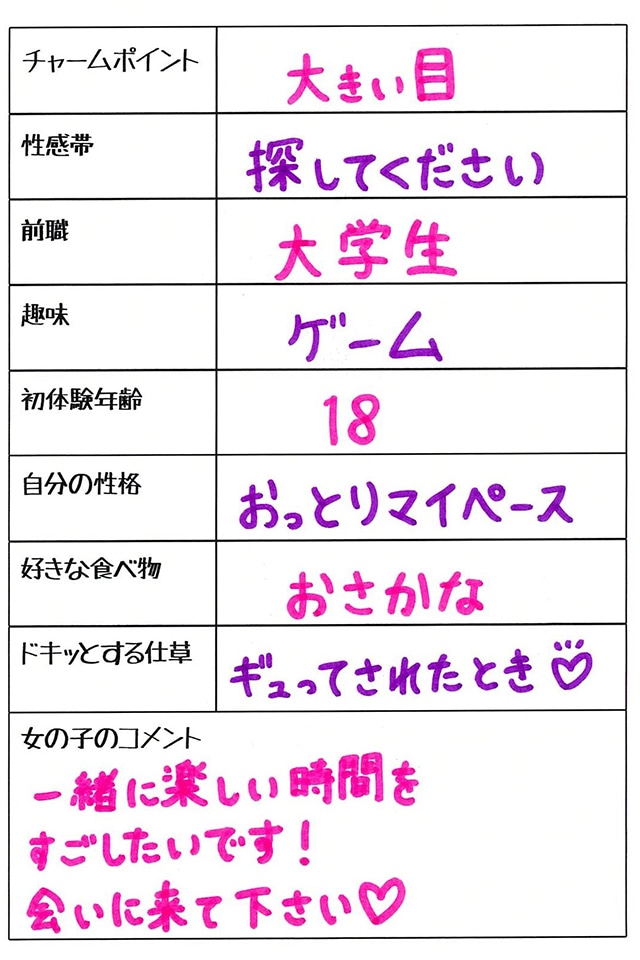 チャームポイント 大きい目
性感帯 探してください
前職 大学生
趣味 ゲーム
初体験年齢 18
自分の性格 おっとりマイペース
好きな食べ物 おさかな
ドキッとする仕草 ギュってされたとき♡
女の子のコメント
一緒に楽しい時間を
すごしたいです!
会いに来て下さい♡